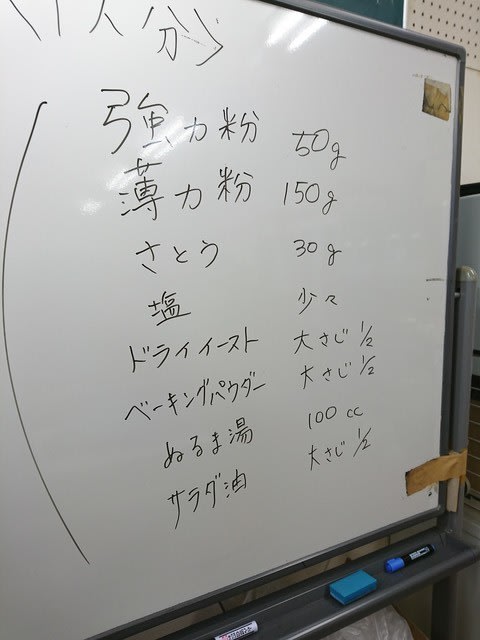 〈1人分〉
強力粉 50g
薄力粉 150g
さとう 30g
塩 少々
ドライイースト 大さじ 1/2
ベーキングパウダー 大さじ 1/2
ぬるま湯 100cc
サラダ油 大さじ 1/2